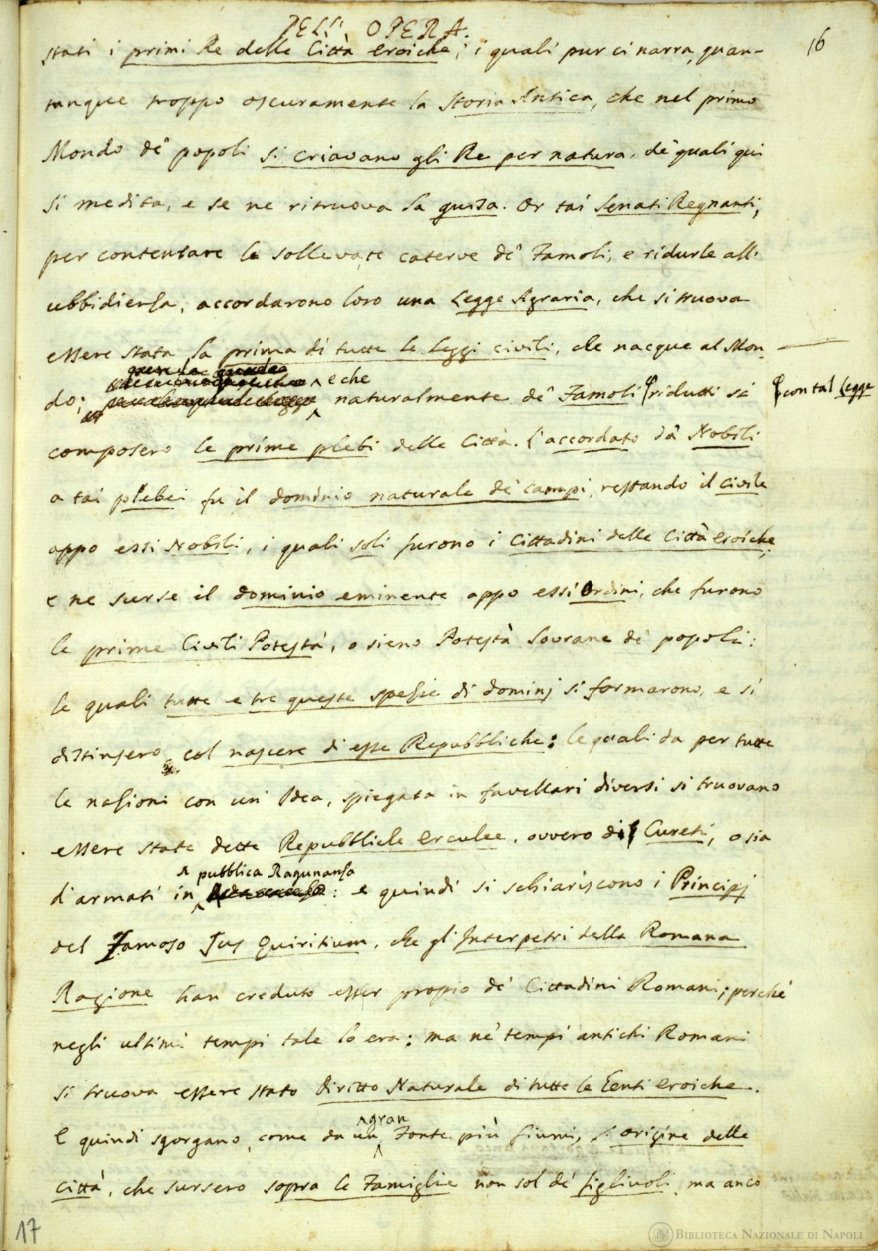 DELL' OPERA.
16
stati i primi Re delle Città Eroiche; i quali pur ci narra, quan-
tunque troppo oscuramente la Storia Antica, che nel primo
Mondo de' popoli si criavano gli Re per natura, de' quali qui
si medita, e se ne ritruova la guisa. Or tai Senati Regnanti,
per contentare le sollevate caterve de' Famoli, e ridurle all'
ubbidienza, accordarono loro una Legge Agraria, che si truova
essere stata la prima di tutte le Leggi civili, che nacque al Mon-
do; e che naturalmente de' Famoli ridutti si
con tal Legge
composero le prime plebi delle Città. L'accordato da' Nobili
a tai plebei fu il dominio naturale de' campi, restando il civile
appo essi Nobili, i quali soli furono i Cittadini delle Città Eroiche,
e ne surse il dominio eminente appo essi Ordini, che furono
le prime Civili Potestà, o sieno Potestà Sovrane de' popoli:
le quali tutte e tre queste spezie di dominj si formarono, e si
distinsero col nascere di esse Repubbliche: le quali da per tutte
le nazioni con un' Idea, spiegata in favellari diversi si truovano
essere state dette Repubbliche Erculee, ovvero di Cureti, o sia
d'armati in pubblica Ragunanza: e quindi si schiariscono i Principj
del Famoso Jus Quiritium, che gl'Interpetri della Romana
Ragione han creduto esser propio de' Cittadini Romani; perché
negli ultimi tempi tale lo era: ma ne' tempi antichi Romani
si truova essere stato Diritto Naturale di tutte le Genti Eroiche.
E quindi sgorgano, come da un gran Fonte più fiumi, l'origine delle
Città, che sursero sopra le Famiglie non sol de' figliuoli, ma anco
17
BIBLIOTECA NAZIONALE DI NAPOLI